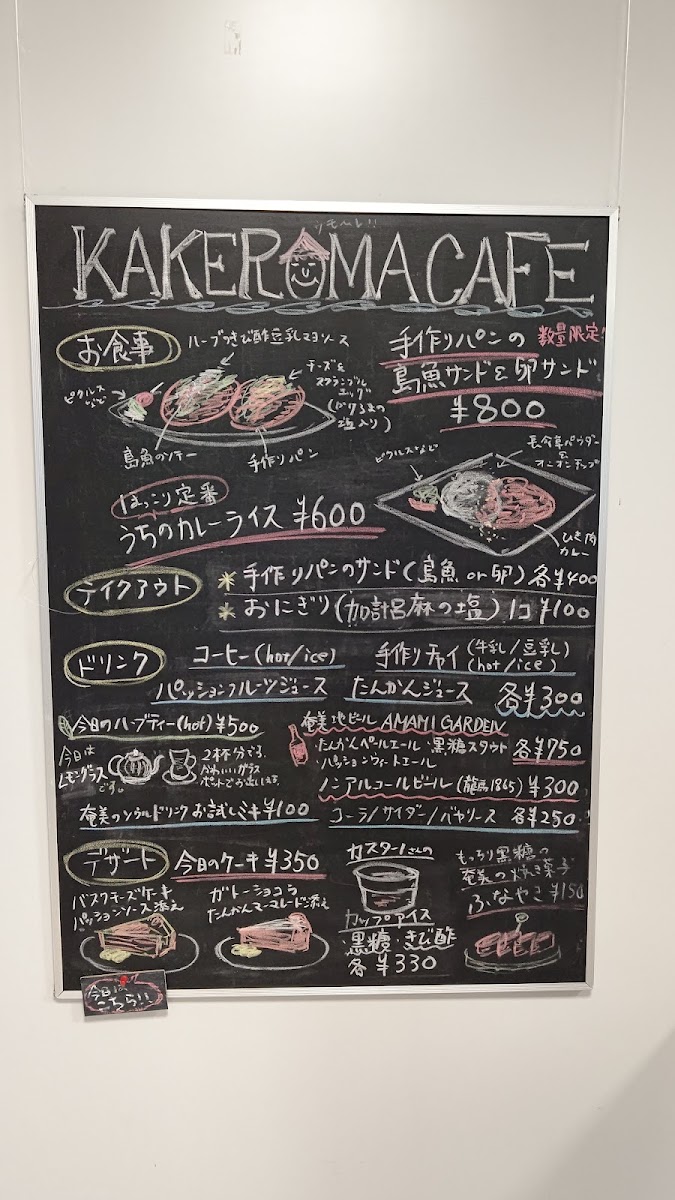 KAKEROMA CAFE
お食事
ハーブきび酢豆乳マヨソース
ピクルス
など
チーズ&
スクランブル
エッグ
塩入り)
島魚のソテー
手作りパン
手作りパンの 数量限定!
島魚サンド&卵サンド
¥800
ほっこり定番
うちのカレーライス ¥600
ピクルスなど
長命草パウダー
&
オニオンチップ
ひき肉
カレー
テイクアウト
* 手作りパンのサンド(島魚 or 卵) 各¥400
* おにぎり(加計呂麻の塩) 1コ ¥100
ドリンク
コーヒー(hot/ice)
手作りチャイ (牛乳/豆乳)
(hot/ice)
パッションフルーツジュース たんかんジュース 各¥300
今日のハーブティー(hot) ¥500
今日は
レモングラス
です。
2杯分です。
かわいいガラス
ポットでお出しします。
奄美のソウルドリンク お試しミキ ¥100
奄美地ビール AMAMI GARDEN
・たんかんペールエール ・黒糖スタウト
・パッションウィートエール
各¥750
ノンアルコールビール (龍馬1865) ¥300
コーラ/サイダー/バヤリース 各¥250
デザート
今日のケーキ ¥350
バスクチーズケーキ
パッションソース添え
ガトーショコラ
たんかんマーマレード添え
カップアイス
・黒糖・きび酢
各 ¥330
もっちり黒糖の
奄美の焼き菓子
ふなやき ¥150
今日は
こちら!!